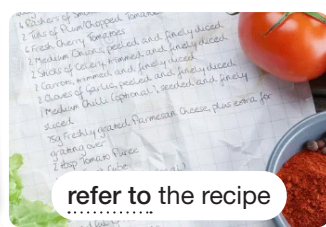 4 Rashers of Smo
2 Tins of Plum/Chopped Tomatoe
6 Fresh Cherry Tomatoes
2 Medium Onions, peeled and finely diced
2 Sticks of Celery, trimmed and finely diced
2 Carrots, trimmed and finely diced
2 Cloves of Garlic, peeled and finely diced
1 Medium Chilli (optional), seeded and finely
sliced
75g Freshly grated Parmesan Cheese, plus extra for
grating over
2 tbsp Tomato Puree
refer to the recipe